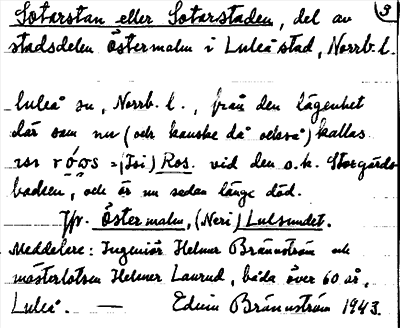 Sotarstan eller Sotarstaden, del av 3
stadsdelen Östermalm i Luleå stad, Norrb. l.
Luleå sn, Norrb. l., från den lägenhet
där som nu (och kanske då också) kallas
rows = (Isi) Ros. vid den s. k. Storgårds
backen, och är nu sedan länge död.
Jfr. Östermalm, (Neri) Lulsundet.
Meddelare: Ingeniör Helmer Brännström och
mästerlotsen Helmer Laurud, båda över 60 år,
Luleå. — Edvin Brännström 1943.